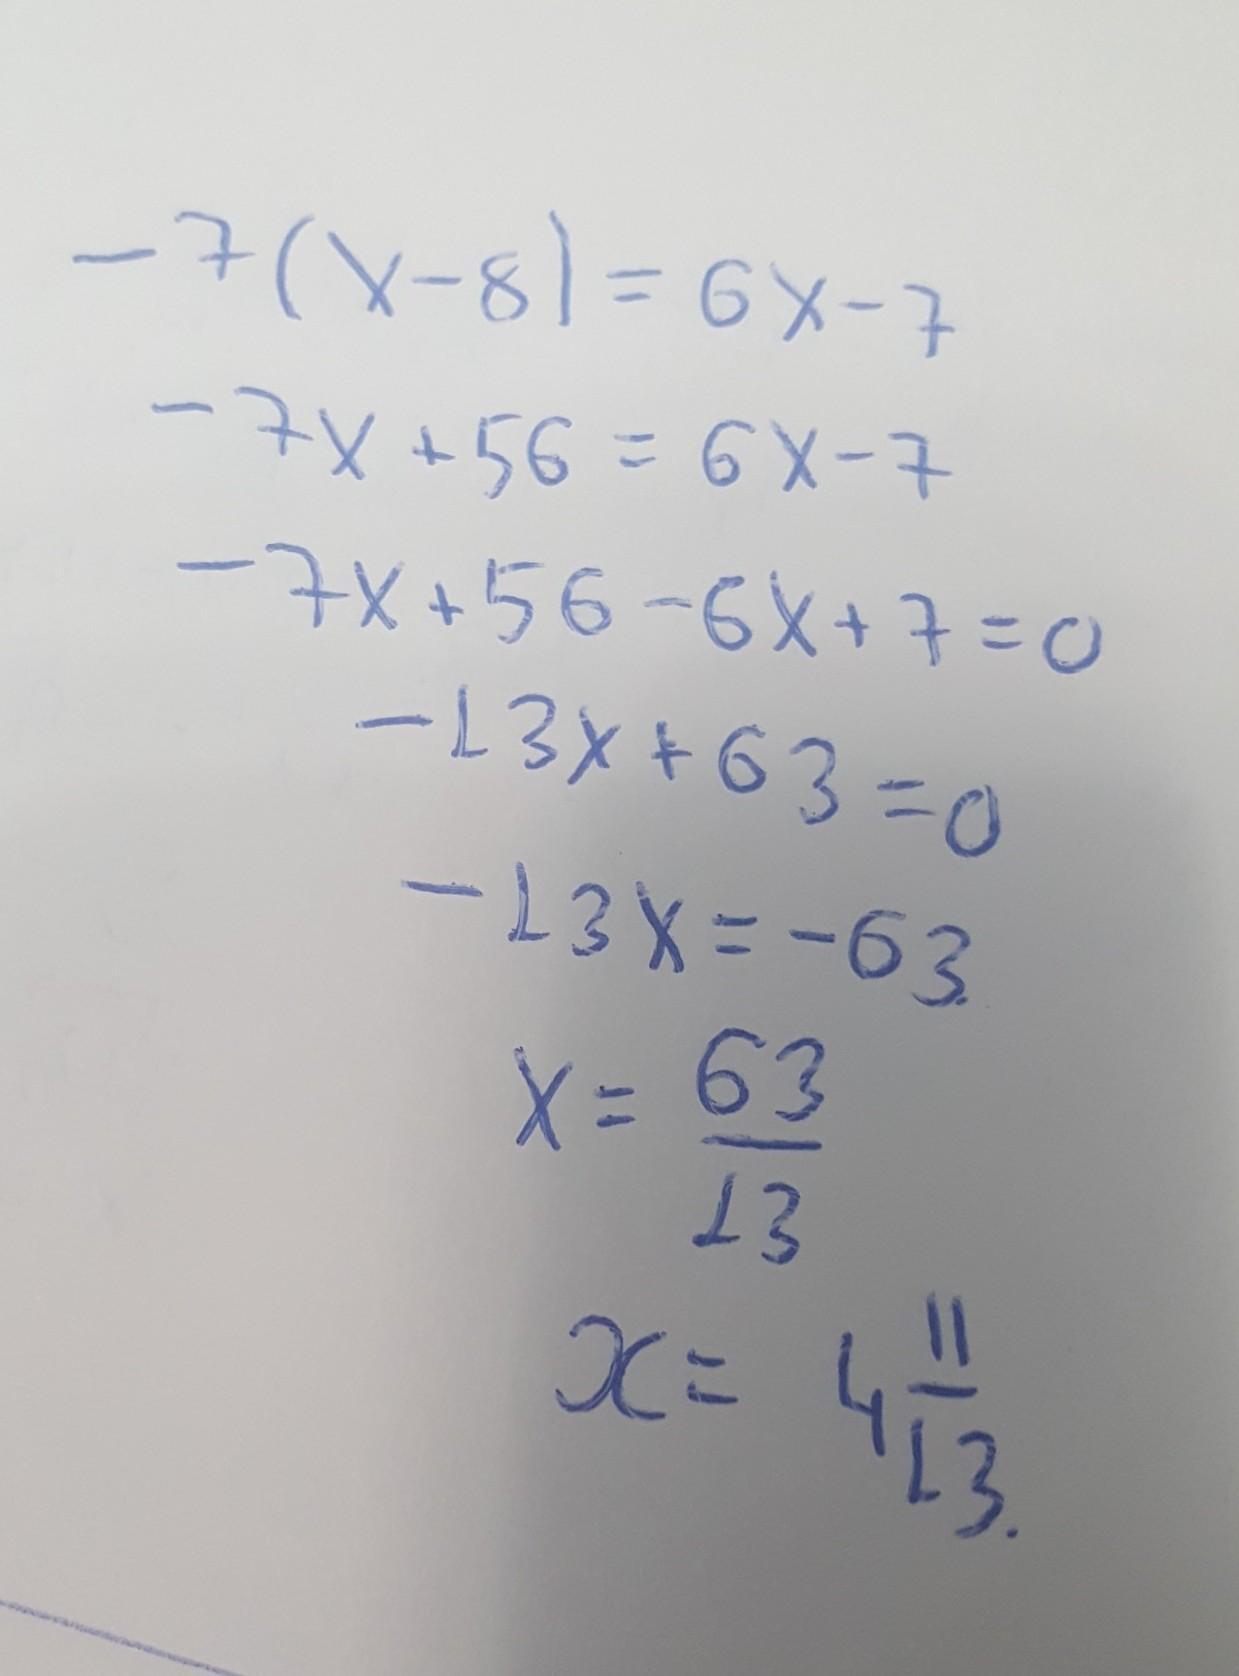 -7(x-8)=6x-7
-7x+56=6x-7
-7x+56-6x+7=0
-13x+63=0
-13x=-63.
x=63/13
x=4 11/13.